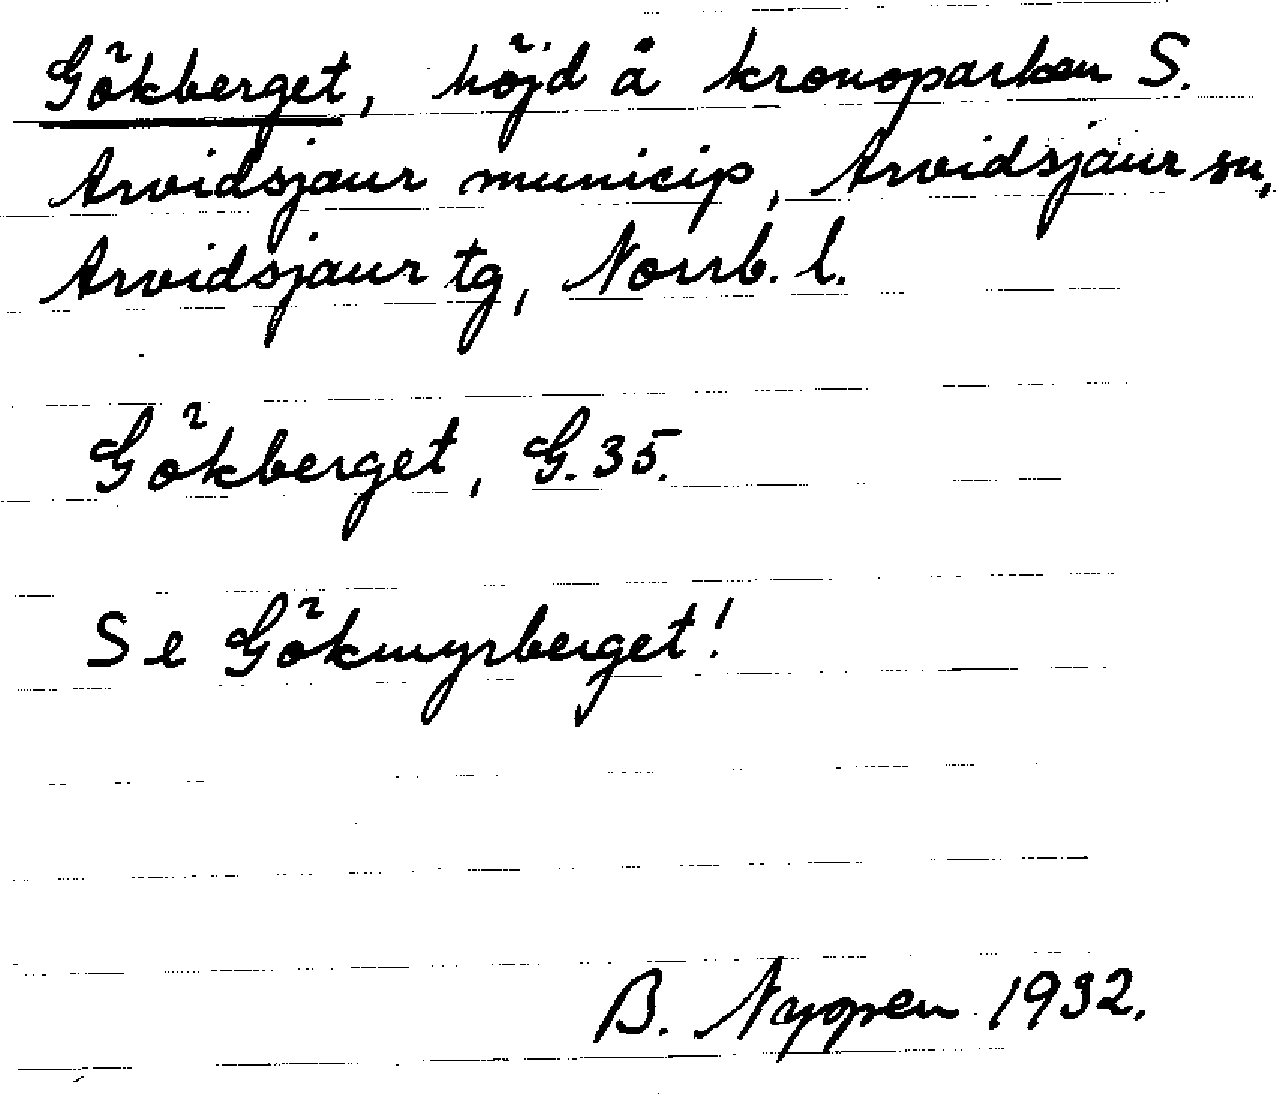 Gökberget, höjd å kronoparken S.
Arvidsjaur municip, Arvidsjaur sn,
Arvidsjaur tg, Norrb. l.
Gökberget, G. 35.
Se Gökmyrberget!
B. Nyppen 1932.